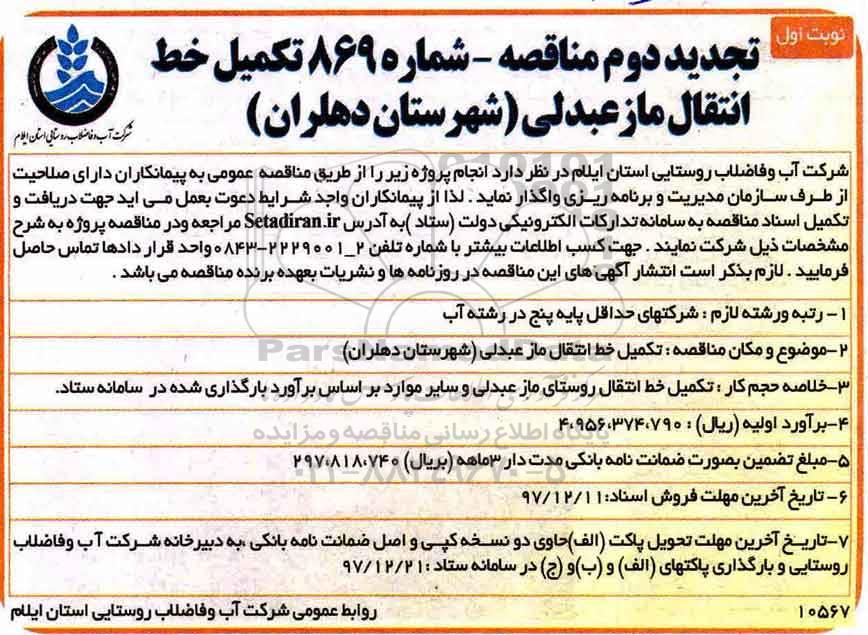 نوبت اول
تجدید دوم مناقصه - شماره ۸۶۹ تکمیل خط
انتقال ماژعبدلی (شهرستان دهلران)
شرکت آب و فاضلاب روستایی استان ایلام
شرکت آب وفاضلاب روستایی استان ایلام در نظر دارد انجام پروژه زیر را از طریق مناقصه عمومی به پیمانکاران دارای صلاحیت
از طرف سازمان مدیریت و برنامه ریزی واگذار نماید . لذا از پیمانکاران واجد شرایط دعوت بعمل می اید جهت دریافت و
تکمیل اسناد مناقصه به سامانه تدارکات الکترونیکی دولت (ستاد )به آدرس Setadiran.ir مراجعه ودر مناقصه پروژه به شرح
مشخصات ذیل شرکت نمایند . جهت کسب اطلاعات بیشتر با شماره تلفن ۲_۲۲۲۹۰۰۱-۰۸۴۳ واحد قرار دادها تماس حاصل
فرمایید . لازم بذکر است انتشار آگهی های این مناقصه در روزنامه ها و نشریات بعهده برنده مناقصه می باشد .
۱- رتبه ورشته لازم : شرکتهای حداقل پایه پنج در رشته آب
۲-موضوع و مکان مناقصه : تکمیل خط انتقال ماژ عبدلی (شهرستان دهلران)
ParsNamadData
۳-خلاصه حجم کار : تکمیل خط انتقال روستای ماژ عبدلی و سایر موارد بر اساس برآورد بارگذاری شده در سامانه ستاد.
۴-برآورد اولیه (ریال) : ۴،۹۵۶،۳۷۴،۷۹۰
پایگاه اطلاع رسانی مناقصه و مزایده
۵-مبلغ تضمین بصورت ضمانت نامه بانکی مدت دار ۳ماهه (بریال) ۲۹۷،۸۱۸،۷۴۰
۰۲۱-۸۸۳۴۹۶۷۰-۵
۶- تاریخ آخرین مهلت فروش اسناد:۹۷/۱۲/۱۱
۷-تاریخ آخرین مهلت تحویل پاکت (الف)حاوی دو نسخه کپی و اصل ضمانت نامه بانکی ،به دبیرخانه شرکت آب وفاضلاب
روستایی و بارگذاری پاکتهای (الف) و (ب)و (ج) در سامانه ستاد :۹۷/۱۲/۲۱
۱۰۵۶۷
روابط عمومی شرکت آب وفاضلاب روستایی استان ایلام